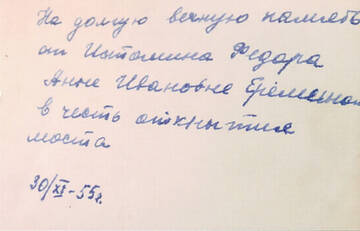 На долгую вечную память
от Истомина Федора
Анне Ивановне
в честь открытия
моста
30/XI-55г.